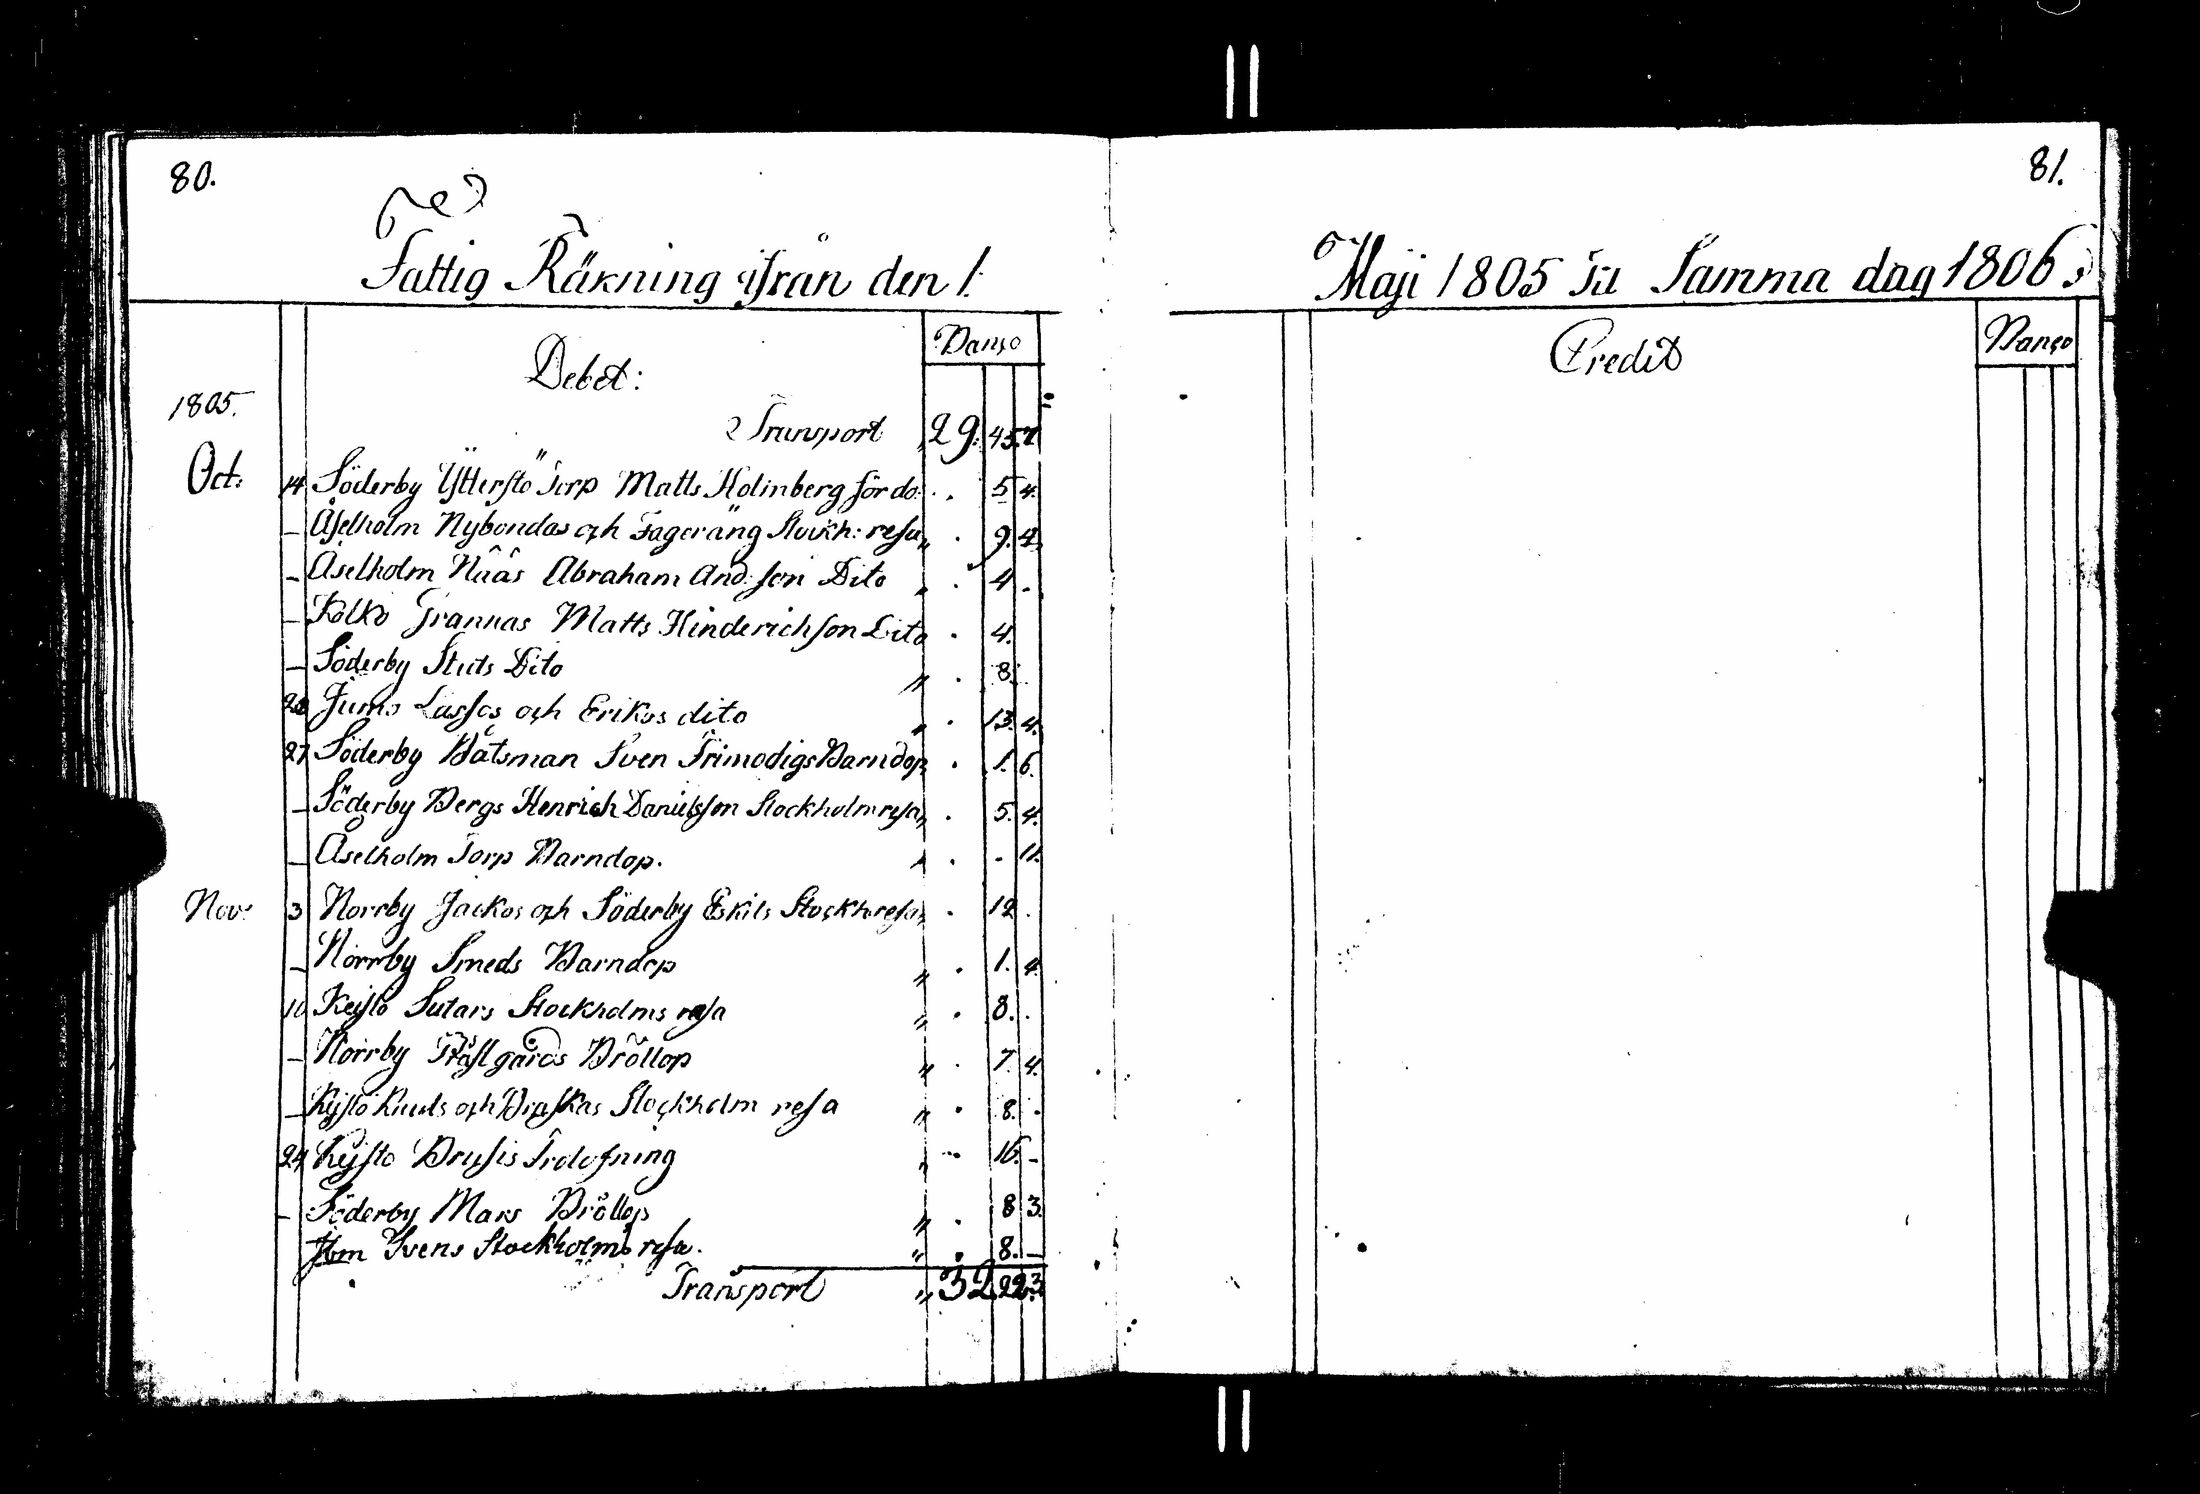 80.
Fattig Räkning ifrån den 1:
Debet:
Banco
1805.
Transport 29. 45. 7
Oct: 14 Söderby Ytterstö Torp Matts Holmberg för do: . 5 4.
— Åselholm Nybondas och Fageräng Stockh: resa „ . 9. 4
— Åselholm Nääs Abraham And:son Dito „ . 4 .
— Kolko Grannas Matts Hinderichson Dito . 4.
— Söderby Stuts Dito „ . 8.
Jumo Lassos och Erikos dito „ . 13. 4.
27 Söderby Båtsman Sven Trimodigs Barndop . 1. 6.
— Söderby Bergs Henrich Danielsson Stockholm resa „ . 5. 4.
— Åselholm Torp Barndop. „ . - 11.
Nov: 3 Norrby Jackos och Söderby Eskils Stockh resa „ . 12 .
— Norrby Smeds Barndop „ . 1. 4.
10 Keistö Sutars Stockholms resa „ . 8. .
— Norrby Prästgårds Bröllop „ . 7. 4.
— Kejstö Knuts och Braskas Stockholm resa „ . 8. .
24 Kejstö Brusis Trolofning „ 16. -
— Söderby Mars Bröllop „ . 8 3.
Jtem Svens Stockholms resa. „ . 8. —
Transport „ 32. 22. 3.
81.
Maji 1805 til Samma dag 1806.
Credit
Banco